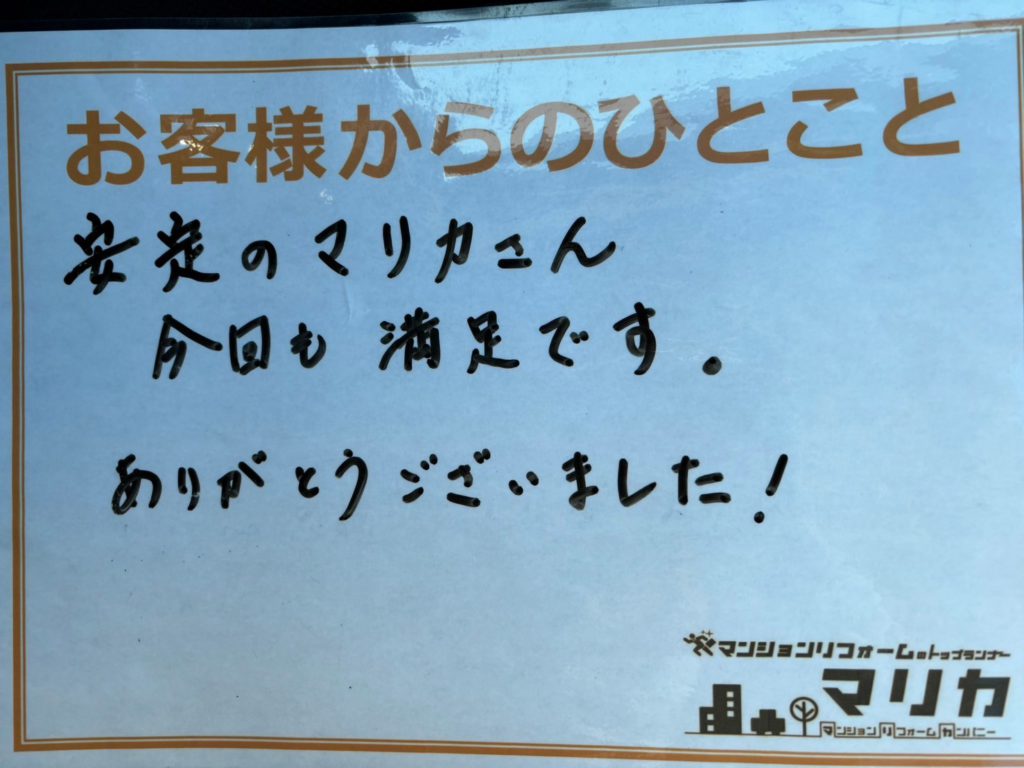 お客様からのひとこと
安定のマリカさん
今回も満足です。
ありがとうございました!
マンションリフォームのトップランナー
マリカ
マンションリフォームカンパニー